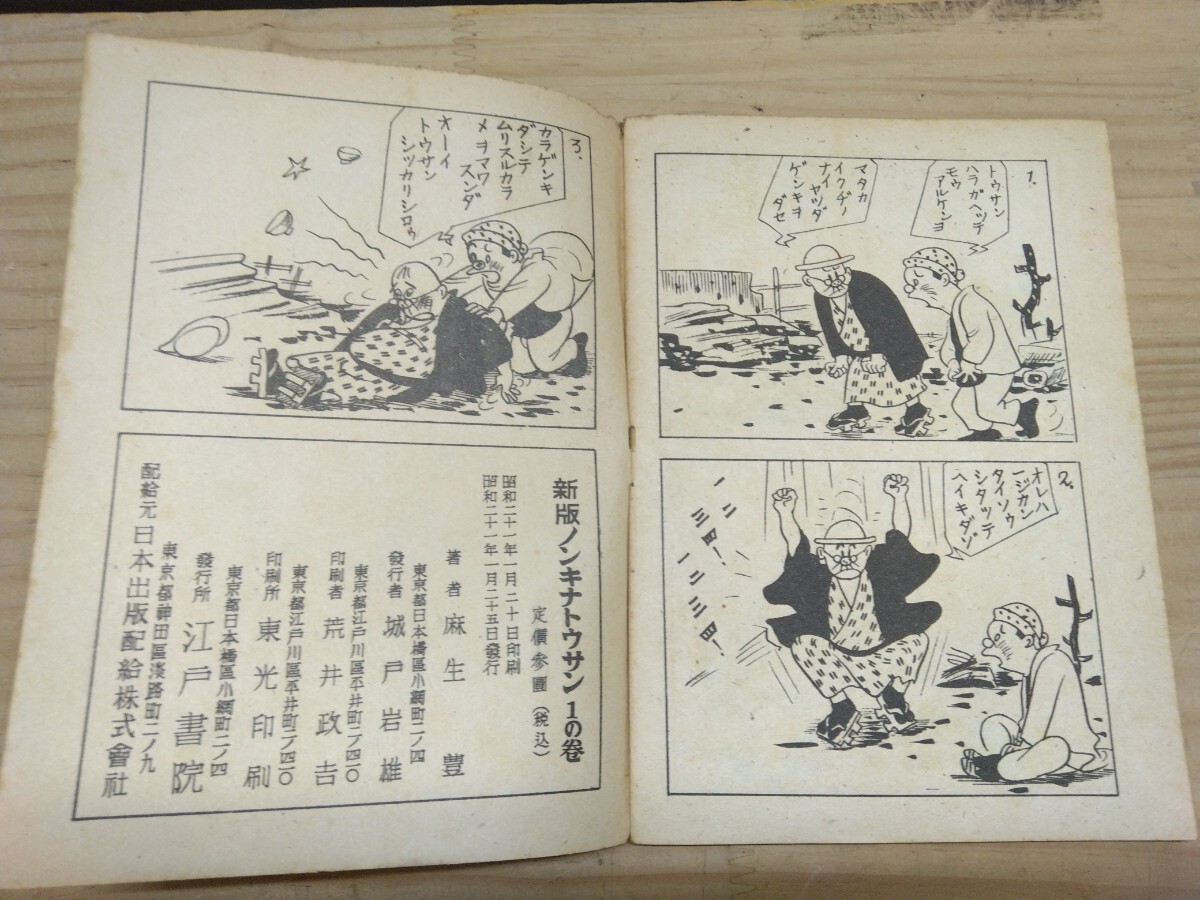 1.
トウサン
ハラガヘツテ
モウ
アルケンヨ
マタカ
イクヂノ
ナイ
ヤツダ
ゲンキヲ
ダセ
2.
オレハ
一ジカン
タイソウ
シタツテ
ヘイキダゾ
一二
三四!
一二三四!
3.
カラゲンキ
ダシテ
ムリスルカラ
メヲマワ
スンダ
オーイ
トウサン
シツカリシロゥ
新版ノンキナトウサン 1の巻
定價参圓(税込)
昭和二十一年一月二十日印刷
昭和二十一年一月二十五日發行
著者 麻生豊
東京都日本橋區小網町二ノ四
發行者 城戸岩雄
東京都江戸川區平井町二ノ四一〇
印刷者 荒井政吉
東京都江戸川區平井町二ノ四一〇
印刷所 東光印刷
東京都日本橋區小網町二ノ四
發行所 江戸書院
東京都神田區淡路町二ノ九
配給元 日本出版配給株式會社